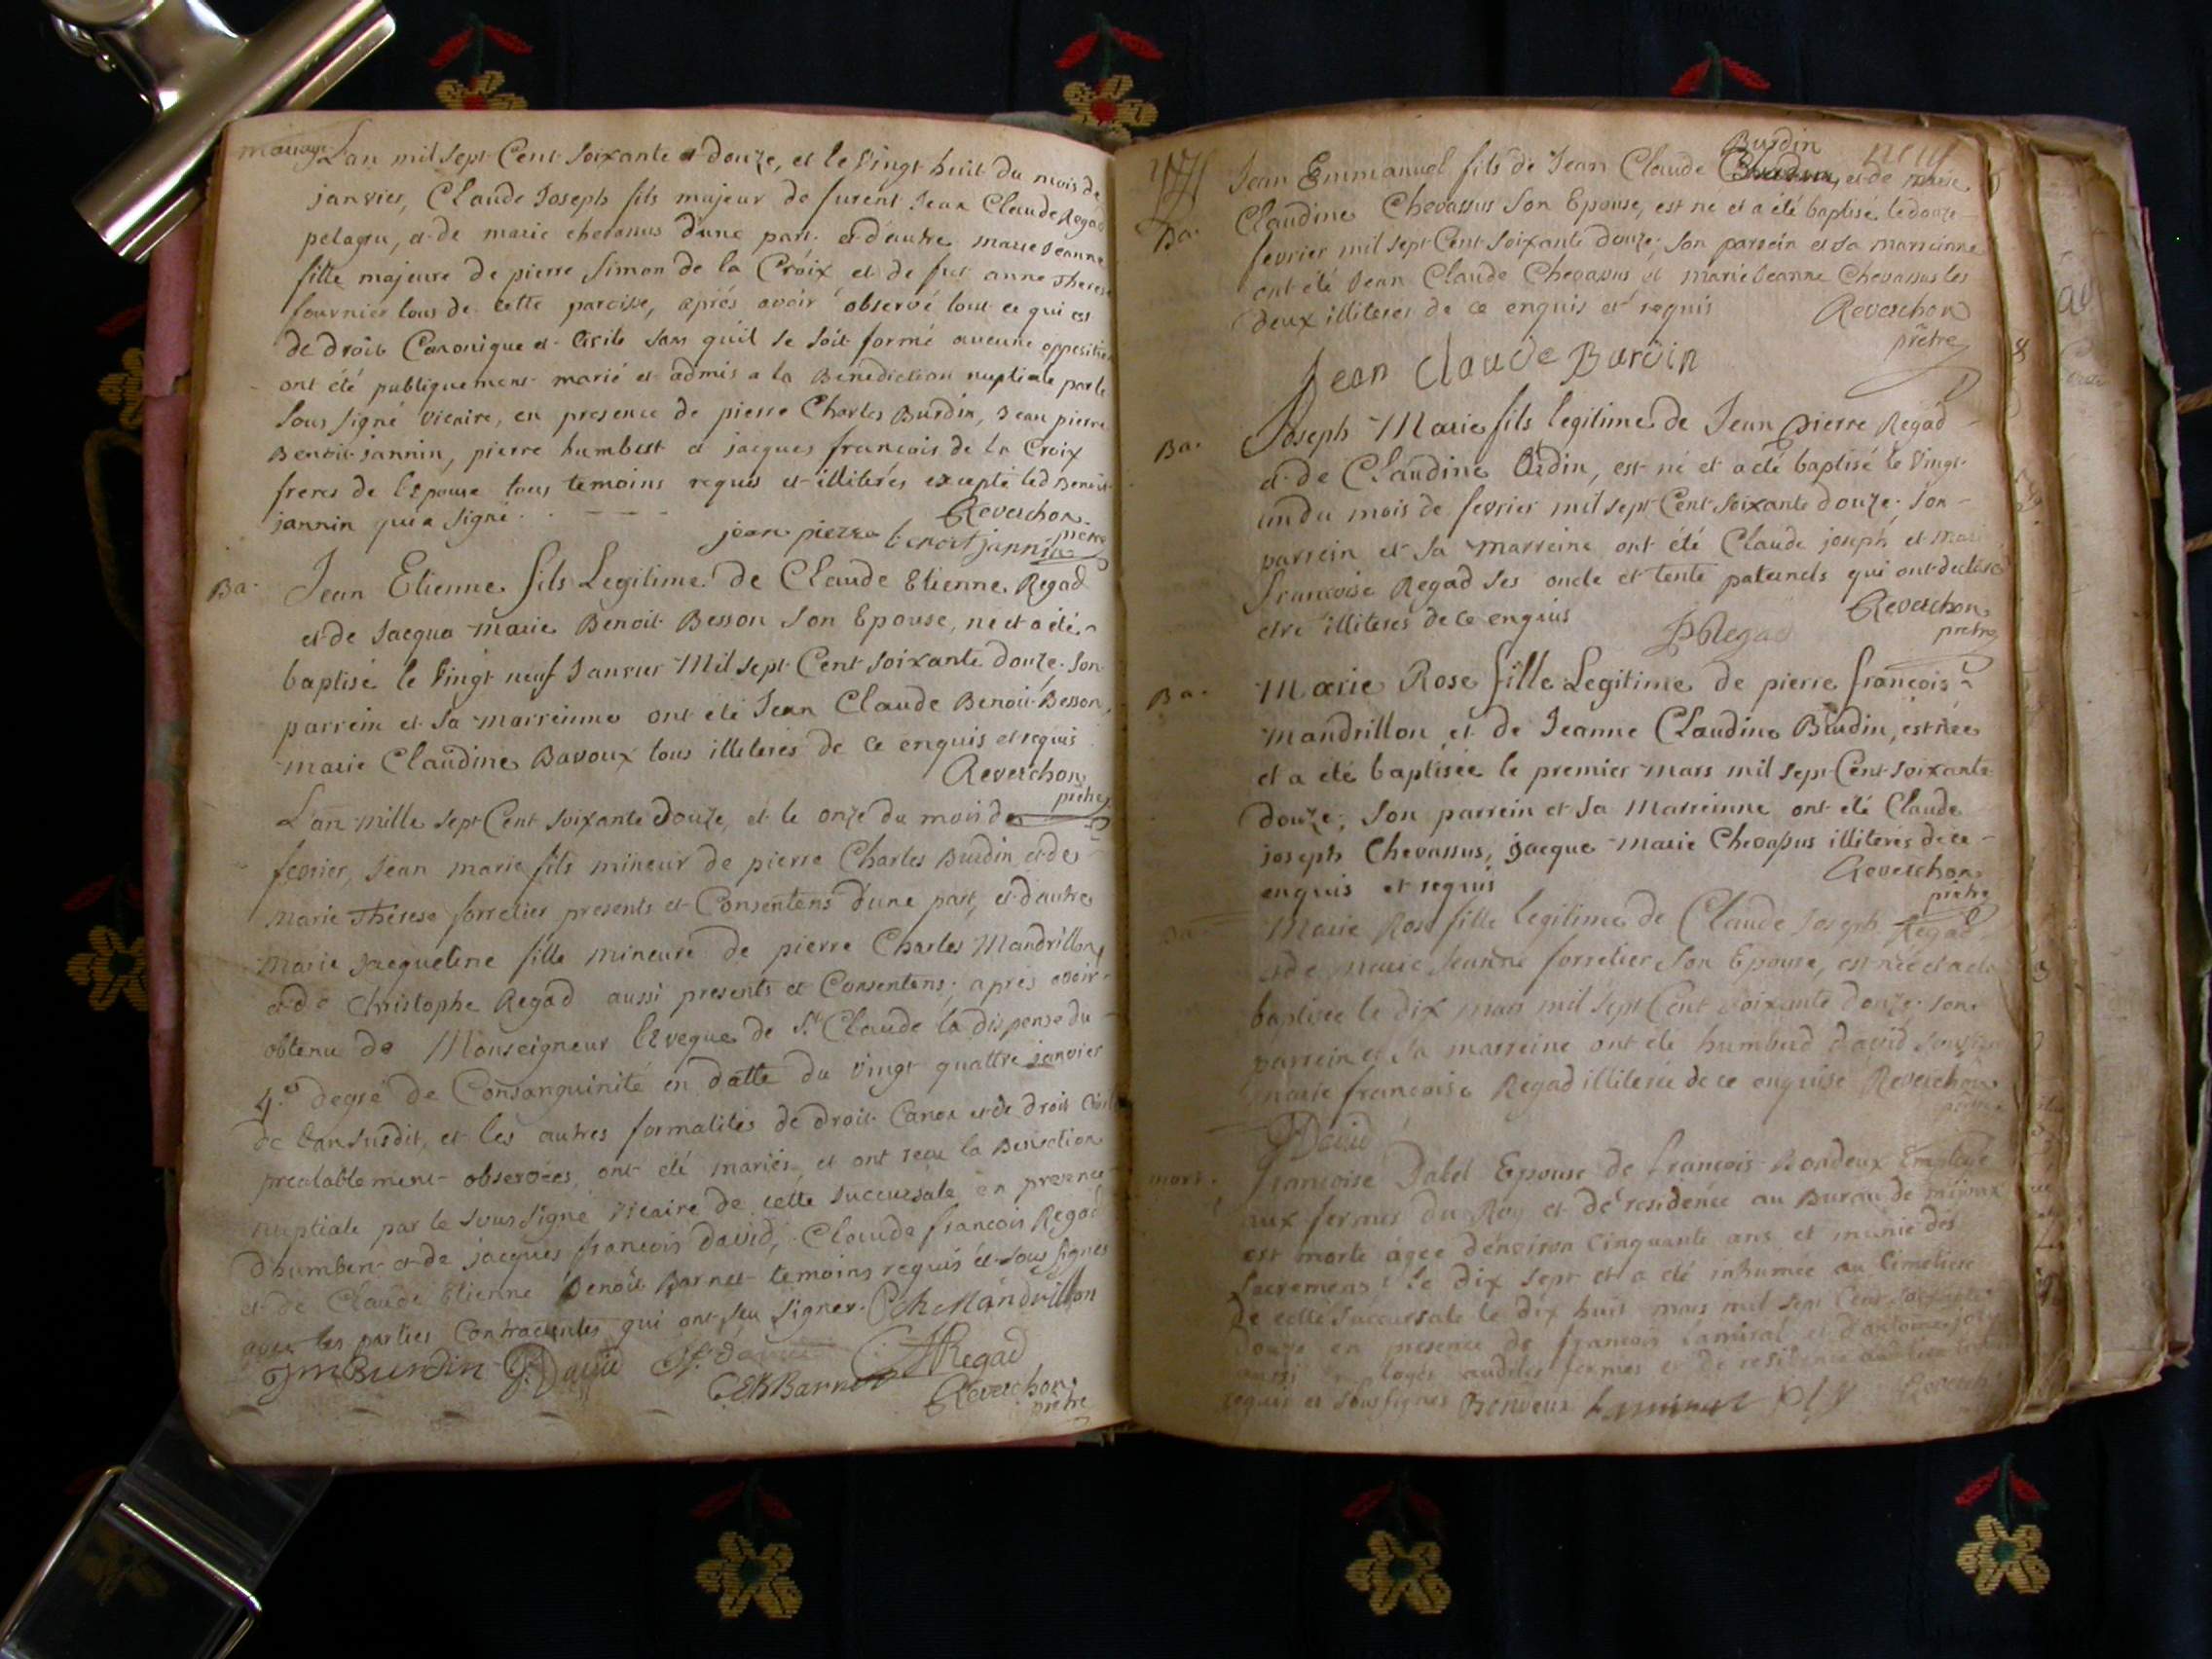 mariage
L'an mil sept Cent soixante et douze, et le vingt huit du mois de
janvier, Claude Joseph fils majeur de furent Jean Claude Regad
pelagru, et de marie chevassus d'une part et d'autre marie Jeanne
fille majeure de pierre Simon de la Croix et de fut anne Therese
fournier tous de cette paroisse, après avoir observé tout ce qui est
de droit Canonique et Civile sans qu'il se soit formé aucune opposition
ont été publiquement marié et admis a la Benediction nuptiale par le
Sous signé vicaire, en presence de pierre Charles Burdin, Jean pierre
Benoit-jannin, pierre humbert et jacques francois de la Croix
freres de l'Epouse tous temoins requis et illiterés excepté led Benoit
jannin qui a signé. Reverchon
jean pierre benoit jannin prêtre
Ba. Jean Etienne fils Legitime de Claude Etienne Regad
et de Jacqua Marie Benoit Besson Son Epouse, né et a été
baptisé le vingt neuf Janvier Mil sept Cent soixante douze. Son
parrein et Sa marreinne ont été Jean Claude Benoit-Besson,
marie Claudine Bavoux tous illiterés de ce enquis et requis
Reverchon
prêtre
L'an mille sept Cent soixante douze, et le onze du mois de
fevrier, Jean marie fils mineur de pierre Charles Burdin et de
Marie Thérese forretier presents et Consentens d'une part, et d'autre
Marie Jacqueline fille mineure de pierre Charles Mandrillon,
et de Christophe Regad aussi presents et Consentens; après avoir
obtenu de Monseigneur l'Eveque de St Claude la dispense du
4.e degré de Consanguinité en datte du vingt quattre janvier
de l'an susdit, et les autres formalités de droit Canon et de droit Civil
prealablement observées, ont été mariés, et ont reçu la Benediction
nuptiale par le Sous Signé Vicaire de cette Succursale en presence
d'humbert et de jacques francois david, Claude francois Regad
et de Claude Etienne Benoit Barnet temoins requis et sous signés
avec les parties Contractantes qui ont seu signer. Mandrillon
JmBurdin David Regad
CEBBarnet Reverchon
prêtre
Ba. Jean Emmanuel fils de Jean Claude Burdin et de marie
Claudine Chevassus Son Epouse, est né et a été baptisé le douze
fevrier mil sept Cent Soixante douze; Son parrein et Sa marreinne
ont été Jean Claude Chevassus et marie Jeanne Chevassus les
deux illiteres de ce enquis et requis Reverchon
prêtre
Jean Claude Burdin
Ba. Joseph Marie fils legitime de Jean Pierre Regad
et de Claudine, est né et a été baptisé le vingt
un du mois de fevrier mil sept Cent Soixante douze; Son
parrein et Sa marreine ont été Claude joseph et
francoise Regad Ses oncle et tente paternels qui ont declaré
etre illiteres de ce enquis Reverchon
Regad prêtre
Ba. Marie Rose fille Legitime de pierre francois
Mandrillon et de Jeanne Claudine Burdin, est née
et a été baptisée le premier mars mil sept Cent soixante
douze; Son parrein et Sa Marreinne ont été Claude
joseph Chevassus, jacque Marie Chevassus illiterés de ce
enquis et requis Reverchon
prêtre
Ba. Marie Rose fille legitime de Claude Joseph Regad
et de marie Jeanne forretier Son Epouse, est née et a été
baptisée le dix mars mil Sept Cent Soixante douze. Son
parrein et Sa marreine ont été humberd david
marie francoise Regad illiterée de ce enquise Reverchon
prêtre
David
mort. francoise Dalel Epouse de francois Bondeux Employé
aux fermes du Roy et de residence au Bureau de mijoux
est morte ágée d'environ Cinquante ans et munie des
Sacremens le dix Sept et a été inhumée au Cimetiere
de cette Succursale le dix huit mars mil sept Cent soixante
douze en presence de francois Lamiral et d'antoine joly
aussi employés auxdites fermes et de residence
requis et sous signés Reverchon